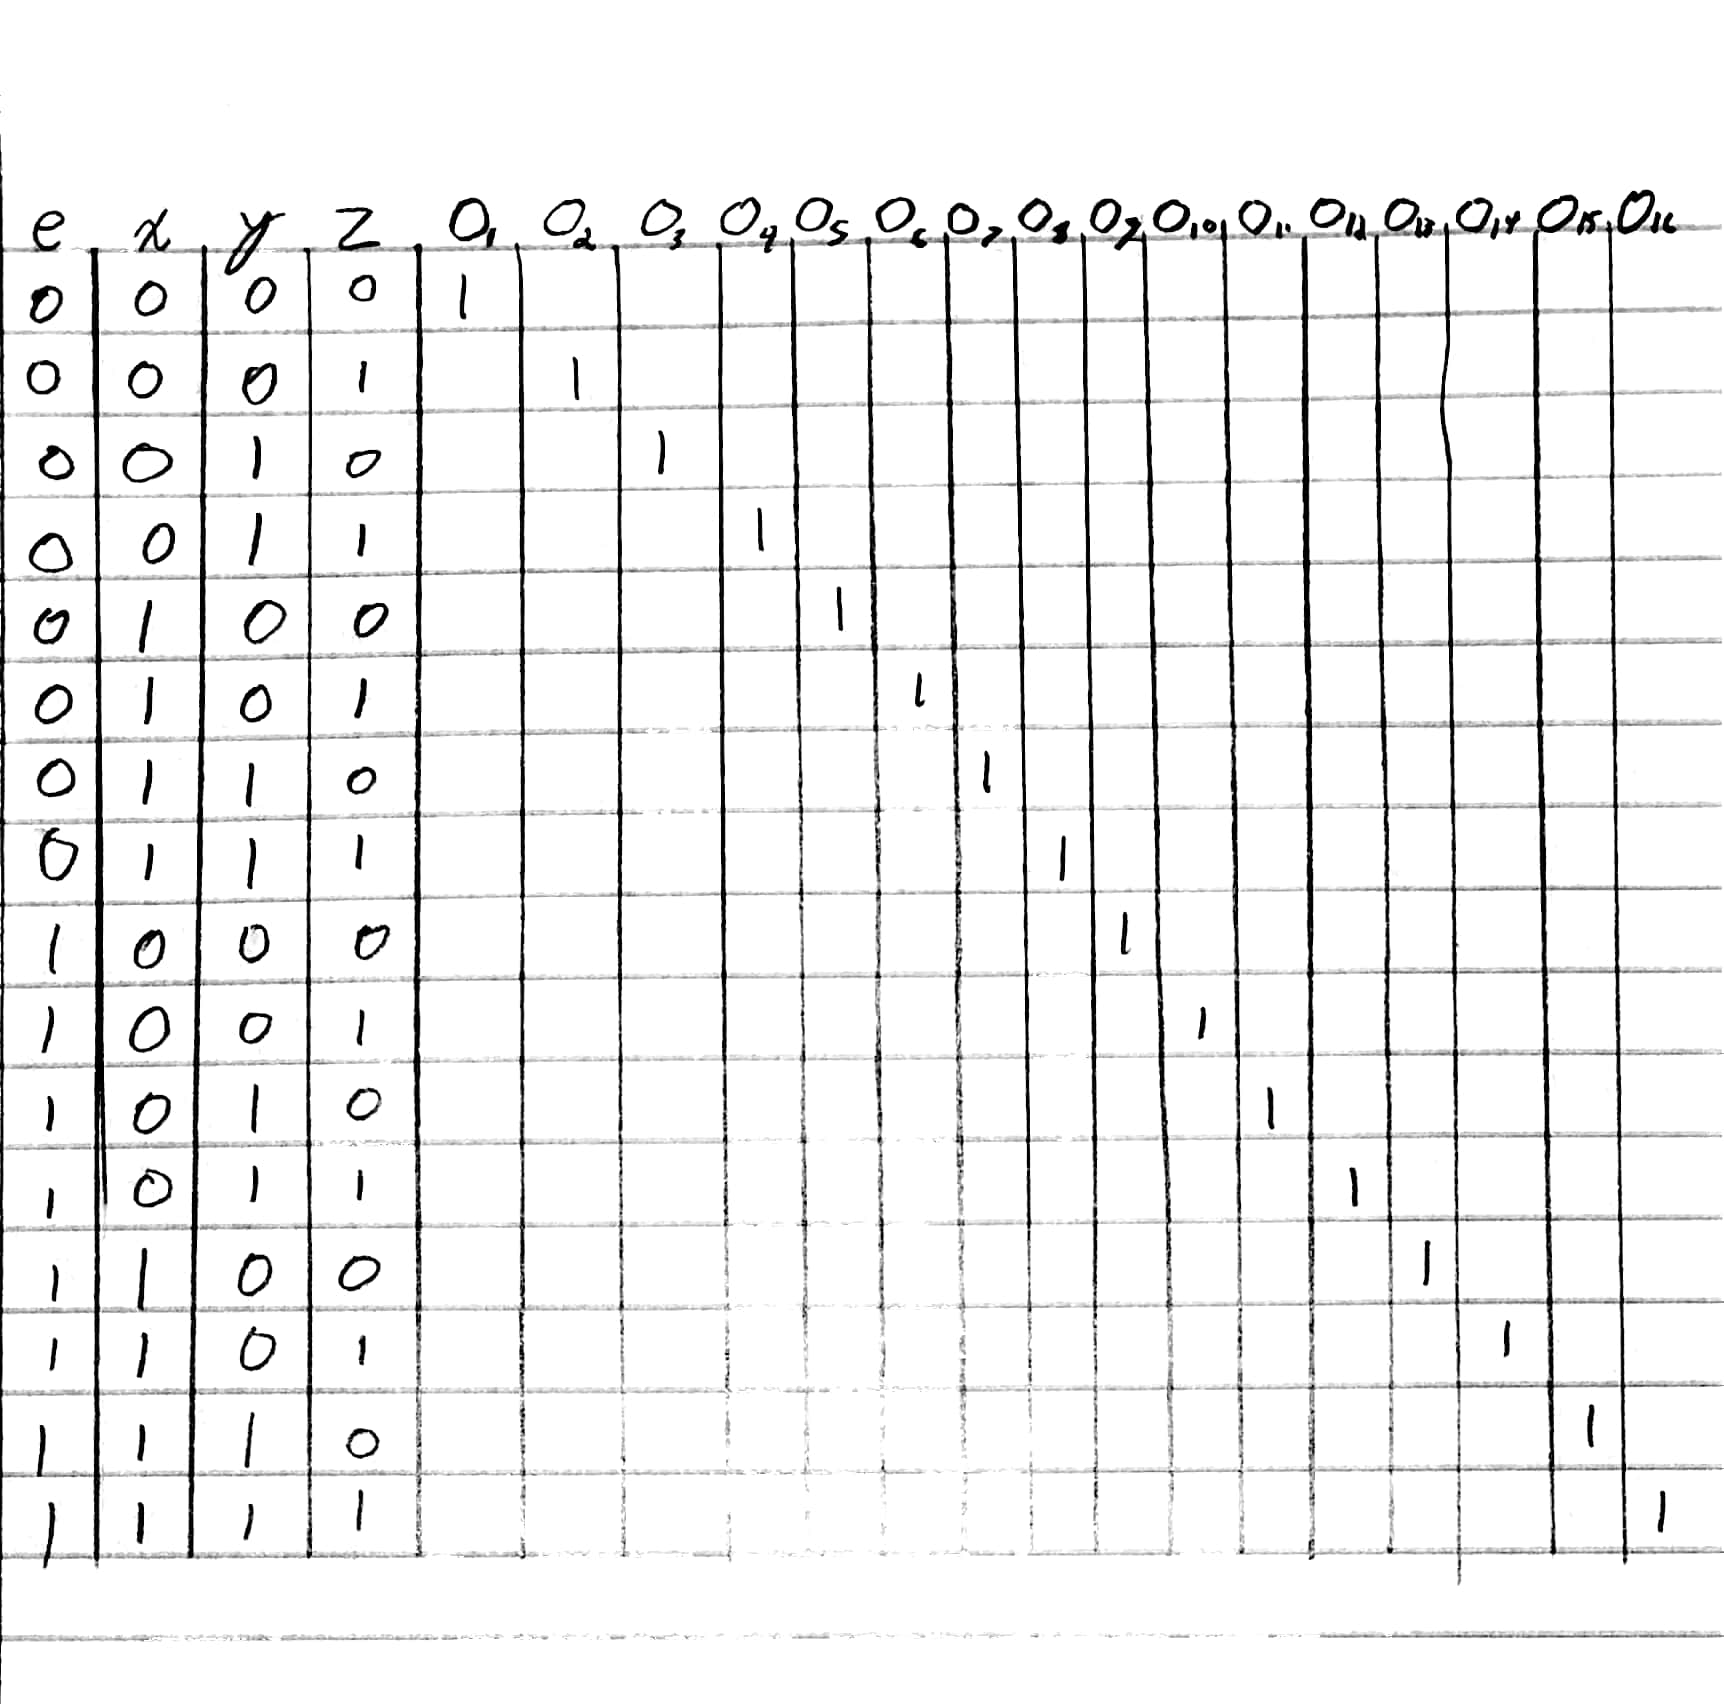 e x y z O₁ O₂ O₃ O₄ O₅ O₆ O₇ O₈ O₉ O₁₀ O₁₁ O₁₂ O₁₃ O₁₄ O₁₅ O₁₆
0 0 0 0 1
0 0 0 1 1
0 0 1 0 1
0 0 1 1 1
0 1 0 0 1
0 1 0 1 1
0 1 1 0 1
0 1 1 1 1
1 0 0 0 1
1 0 0 1 1
1 0 1 0 1
1 0 1 1 1
1 1 0 0 1
1 1 0 1 1
1 1 1 0 1
1 1 1 1 1